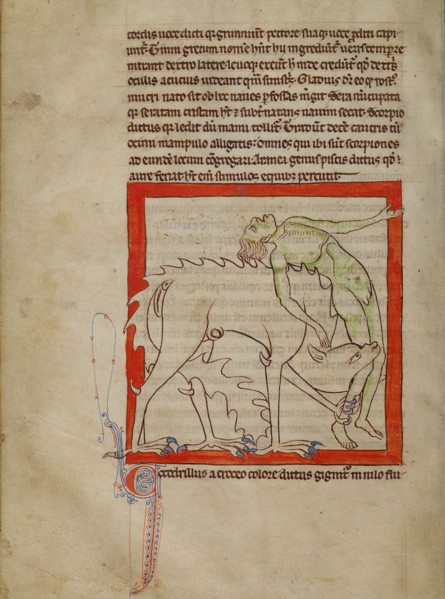 cordis uoce dicti qr grunniunt pectore sua q; uoce p̄diti capi
unt̄. Tinni grecum nom̄e hn̄t hii ingrediunt̄ ueris tempore
intrant dextro latere leuoq; exeunt hinc credunt̄ qd̄ dextris
oculis acutius uideant qm̄ sinistr̄. Gladius dr̄ eo q̄ rost̄
mucronato sit ob hoc naues p̄fossas m̄git. Serra nūcupata
qr serratam cristam ht̄ ⁊ subt̄ natans nauim secat. Scorpio
dictus qr ledit dū manu tollit̄. Tradunt decē cancris cū
ocimi manipulo alligatis. omnes qui ibi sunt scorpiones
ad eundē locum cōgregari. Aranei genus piscis dictus qd̄
aure feriat. ht̄ eni stimulos equib; percutit.
Cocodrillus a croceo colore dictus gignit̄ in nilo flu